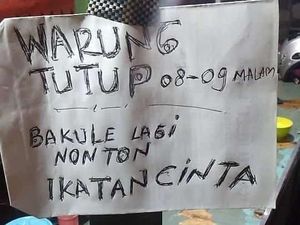 WARUNG
TUTUP 08-09 MALAM
BAKULE LAGI
NONTON
IKATAN CINTA